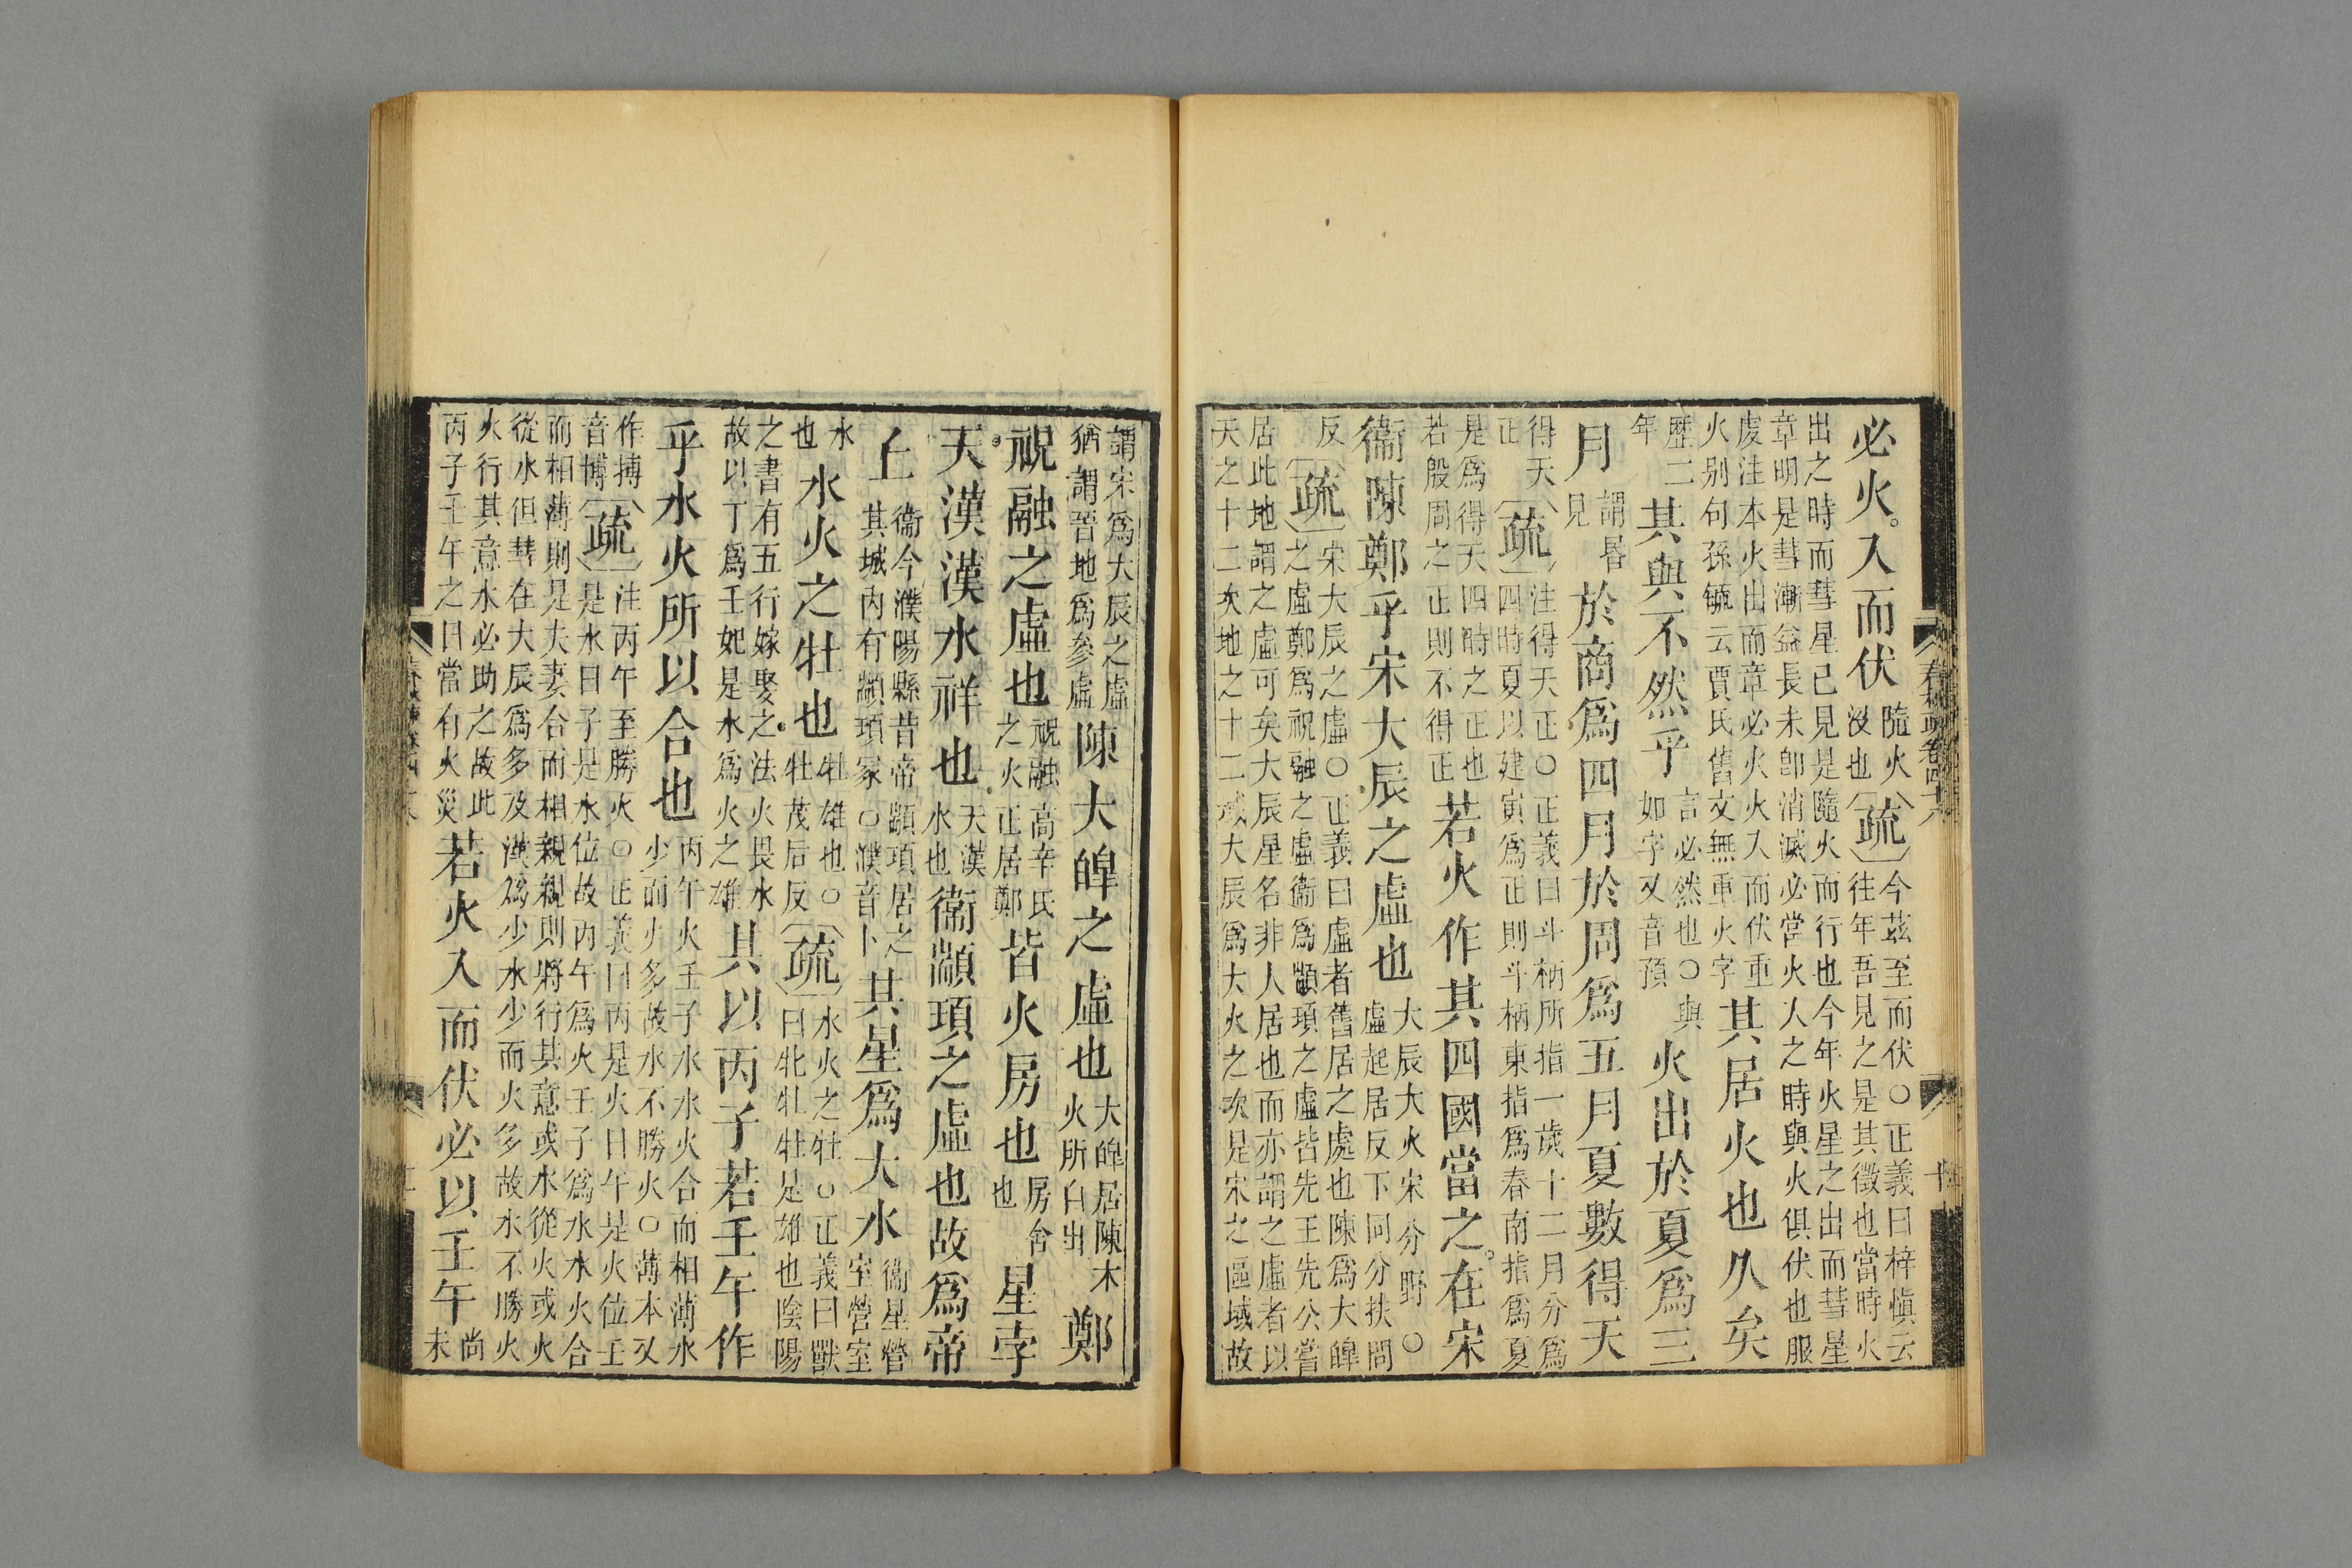 必火入而伏隨火沒也疏今茲至而伏○正義曰梓慎云往年吾見之是其徵也當時火
出之時而彗星已見是隨火而行也今年火星之出而彗星
章明是彗漸益長未卽消滅必當火入之時與火俱伏也服
虔注本火出而章必火火入而伏重
火別句孫毓云賈氏舊文無重火字其居火也久矣
歷二年其與不然乎言必然也○與如字又音預火出於夏爲三
月謂昏見於商爲四月於周爲五月夏數得天
得天正疏注得天正○正義曰斗柄所指一歲十二月分爲四時夏以建寅爲正則斗柄東指爲春南指爲夏
是爲得天四時之正也
若殷周之正則不得正若火作其四國當之在宋
衞陳鄭乎宋大辰之虛也大辰大火宋分野○虛起居反下同分扶問
反疏宋大辰之虛○正義曰虛者舊居之處也陳爲大皞之虛鄭爲祝融之虛衞爲顓頊之虛皆先王先公嘗
居此地謂之虛可矣大辰星名非人居也而亦謂之虛者以
天之十二次地之十二域大辰爲大火之次是宋之區域故
謂宋爲大辰之虛
猶謂晉地爲參虛陳大皞之虛也大皞居陳木火所自出鄭
祝融之虛也祝融高辛氏之火正居鄭皆火房也房舍也星孛
天漢漢水祥也天漢水也衞顓頊之虛也故爲帝
丘衞今濮陽縣昔帝顓頊居之其城內有顓頊冢○濮音卜其星爲大水衞星營室營室
水也水火之牡也牡雄也○牡茂后反疏水火之牡○正義曰獸曰牝牡牡是雄也陰陽
之書有五行嫁娶之法火畏水
故以丁爲壬妃是水爲火之雄其以丙子若壬午作
乎水火所以合也丙午火壬子水水火合而相薄水少而火多故水不勝火○薄本又
作搏音博疏注丙午至勝火○正義曰丙是火日午是火位壬是水日子是水位故丙午爲火壬子爲水水火合
而相薄則是夫妻合而相親親則將行其意或水從火或火
從水但彗在大辰爲多及漢爲少水少而火多故水不勝火
火行其意水必助之故此
丙子壬午之日當有火災若火入而伏必以壬午尚未